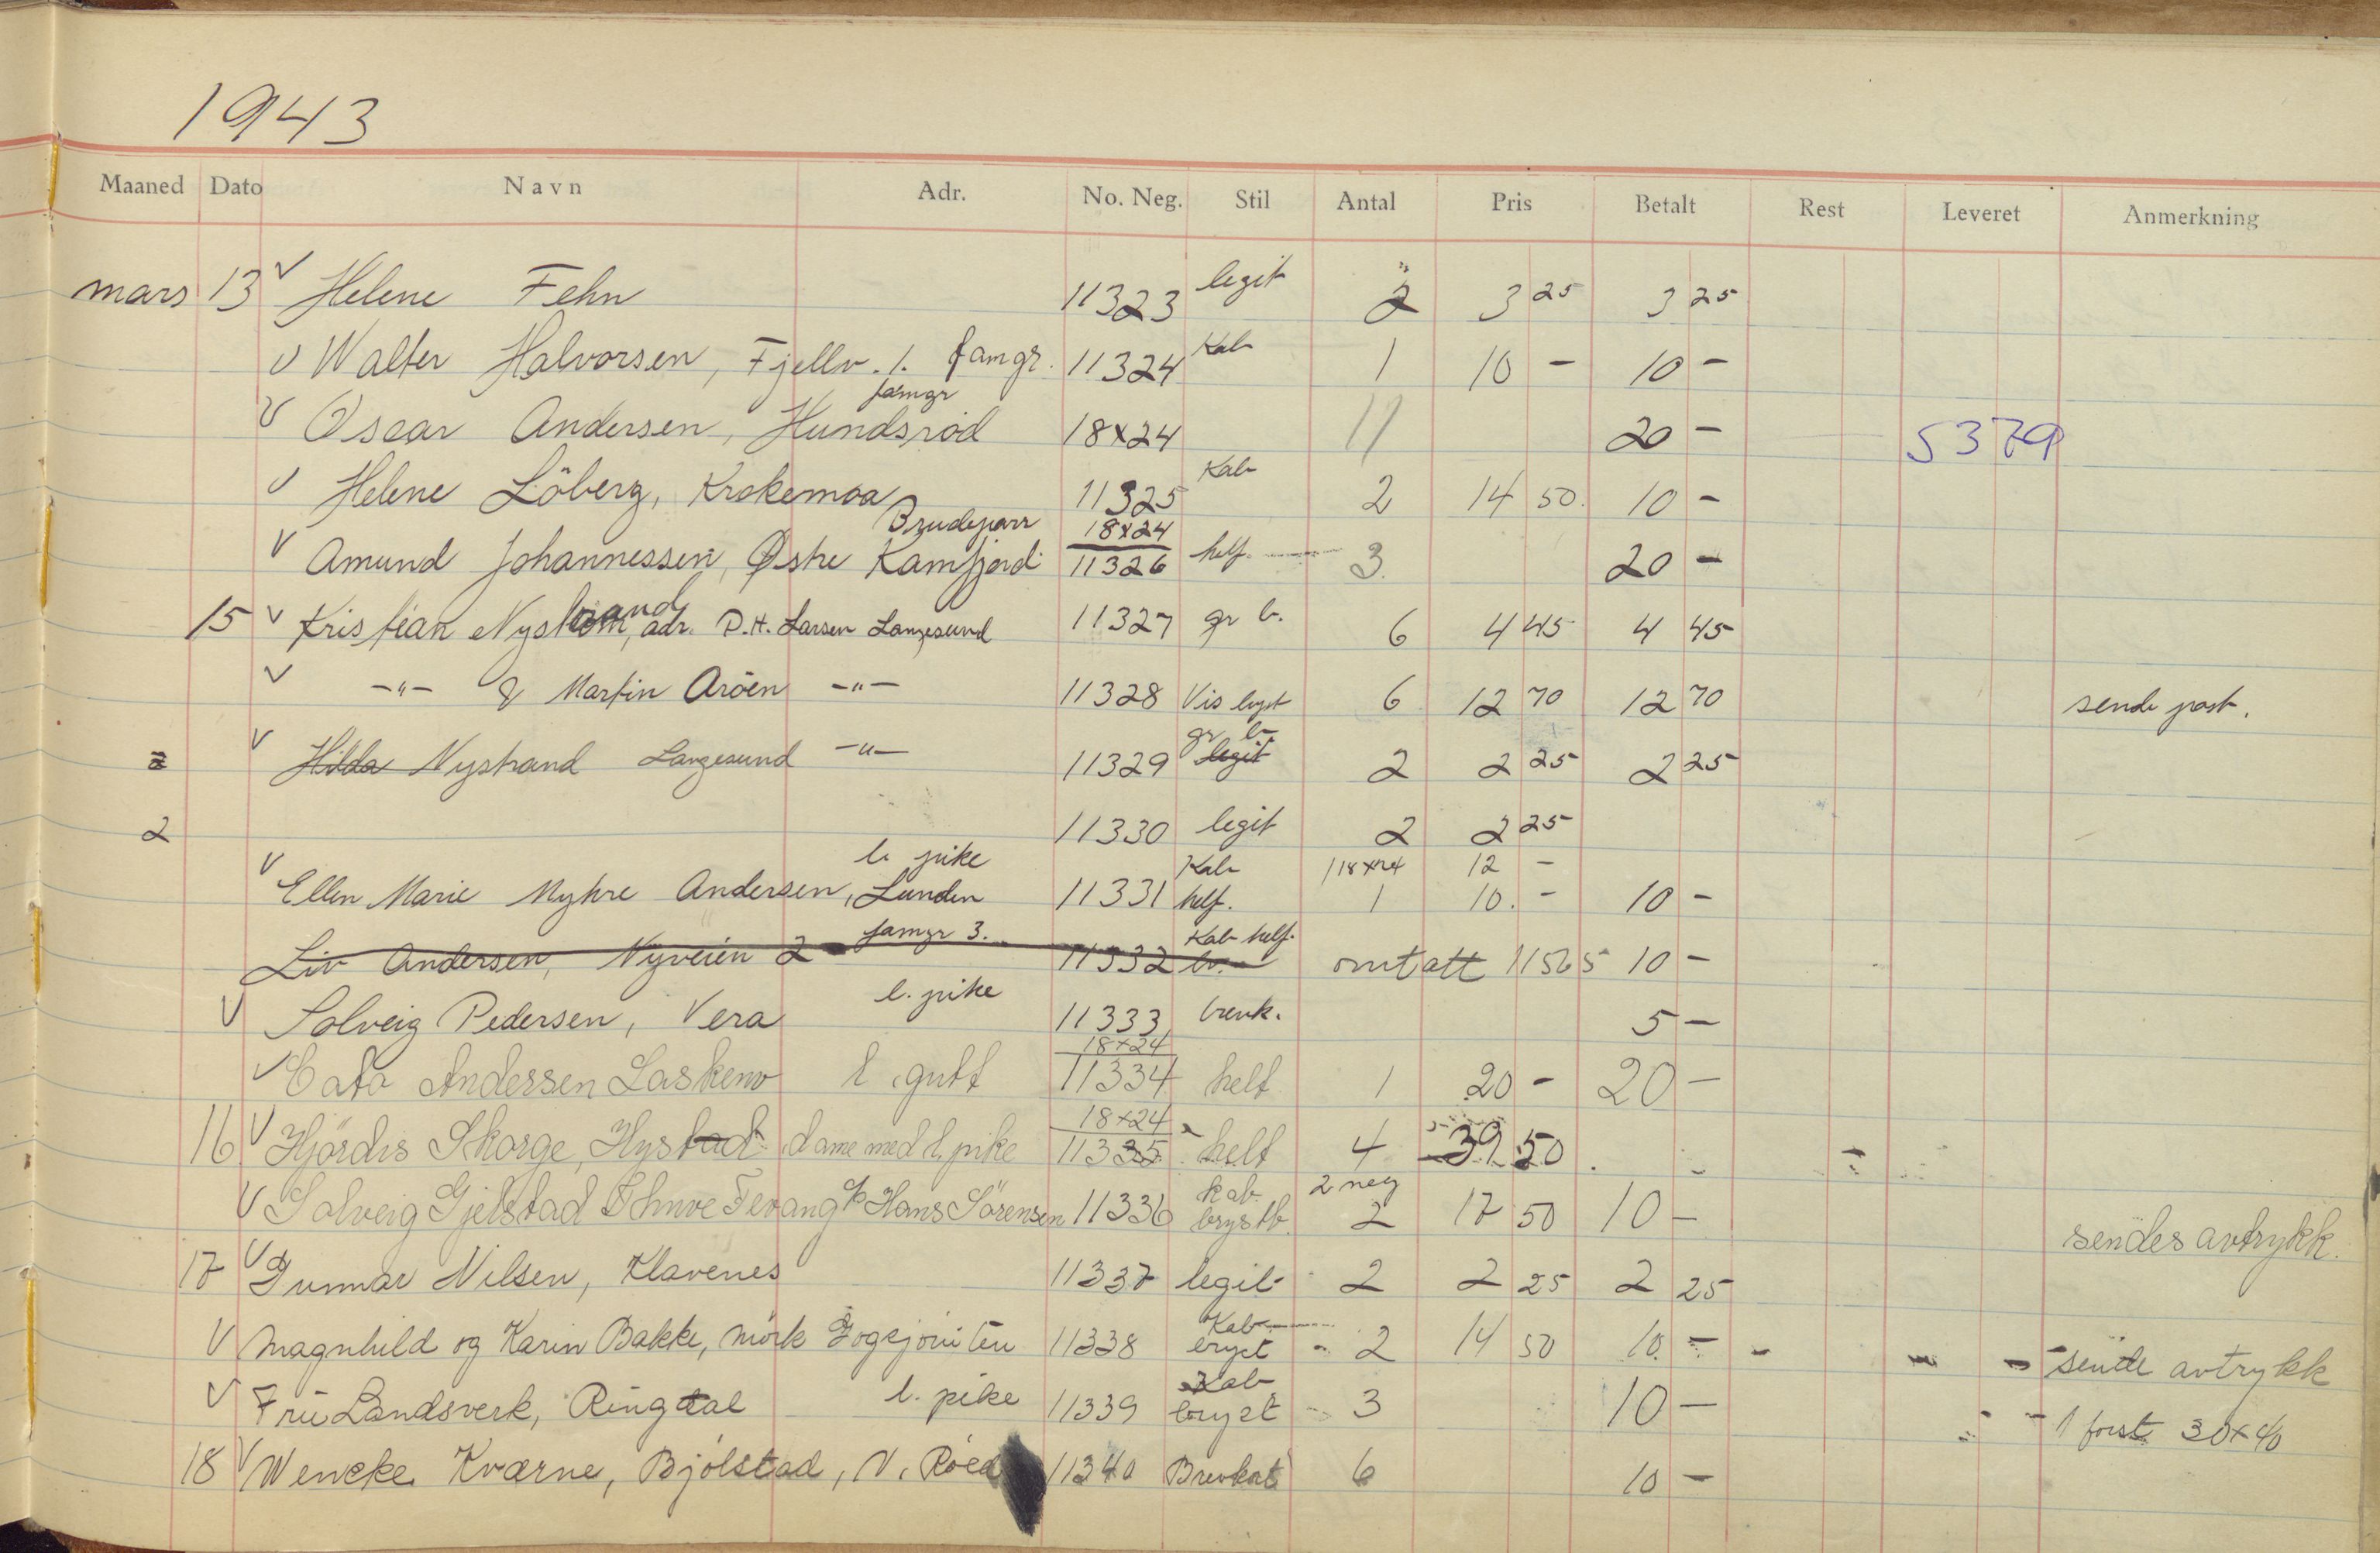 1943
Maaned Dato Navn Adr. No. Neg. Stil Antal Pris Betalt Rest Leveret Anmerkning
mars 13 V Helene Fehn 11323 legit 2 3 25 3 25
V Walter Halvorsen, Fjellv. 1. famgr. 11324 Kab 1 10 - 10 -
famgr
V Oscar Andersen, Hundsröd 18x24 11 20 - 5379
V Helene Löberg, Krokemoa 11325 Kab 2 14 50. 10 -
Brudeparr 18x24
V Amund Johannessen, Østre Kamfjord 11326 helf. 3. 20 -
15 V Kristian Nystrand, adr. P.H. Larsen Langesund 11327 gr b. 6 4 45 4 45
V -"- & Martin Aröen -"- 11328 Vis bryst 6 12 70 12 70 sende post.
gr b.
2 V Hilda Nystrand Langesund -"- 11329 legit 2 2 25 2 25
2 11330 legit 2 2 25
l. pike Kab 1 18x24 12 -
V Ellen Marie Myhre Andersen, Lunden 11331 helf. 1 10. - 10 -
famgr 3. Kab helf.
Liv Andersen, Nyveien 2 11332 omtatt 11565 10 -
l. pike
V Solveig Pedersen, Vera 11333 brevk. 5 -
18x24
V Cato Andersen Laskenv l. gutt 11334 helf 1 20 - 20 -
18x24
16 V Hjördis Skorge, Hystad dame med l. pike 11335 helf 4 39 50
kab. 2 neg
V Solveig Gjelstad Fevang % Hans Sörensen 11336 brystb. 2 17 50 10 - sendes avtrykk.
17 V Gunnar Nilsen, Klavenes 11337 legit 2 2 25 2 25
Kab
V Magnhild og Karin Bakke, mörk 11338 bryst 2 14 50 10. - sende avtrykk
Kab
V Fru Landsverk, Ringdal l. pike 11339 bryst 3 10 - 1 forst 30x40
18 V Wencke Kværne, Bjölstad, N. Röed 11340 Brevkort 6 10 -